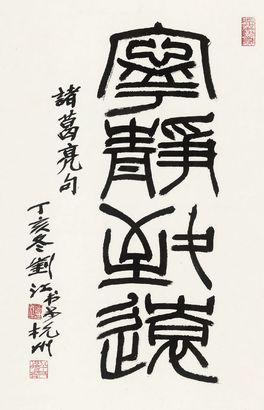 寧靜致遠
諸葛亮句
丁亥冬劉江书于杭州